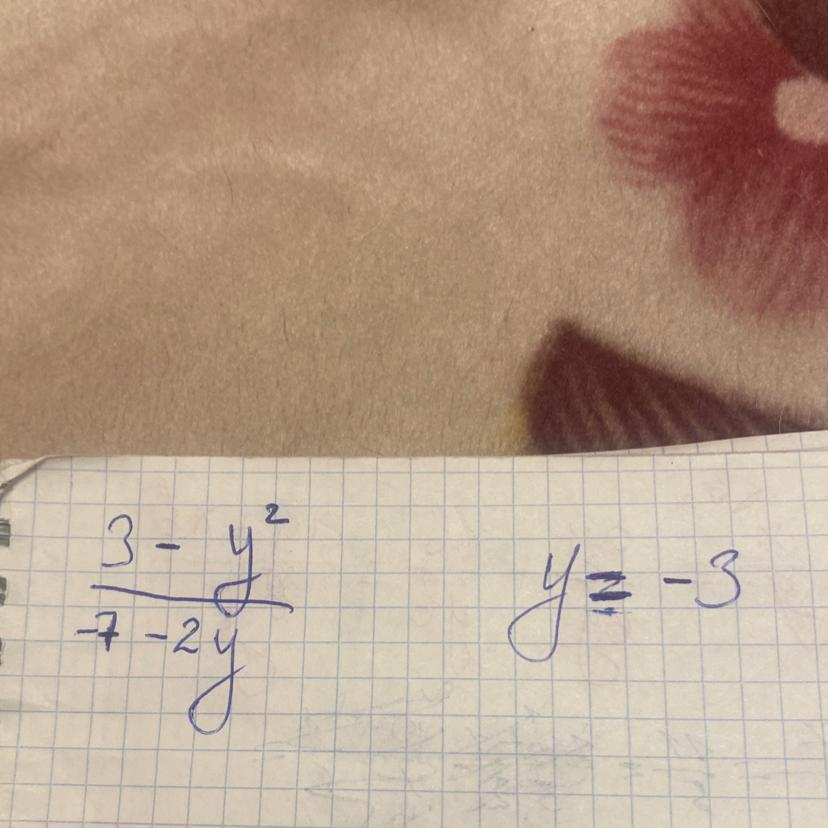 3 - y²
-7 - 2y
y = -3